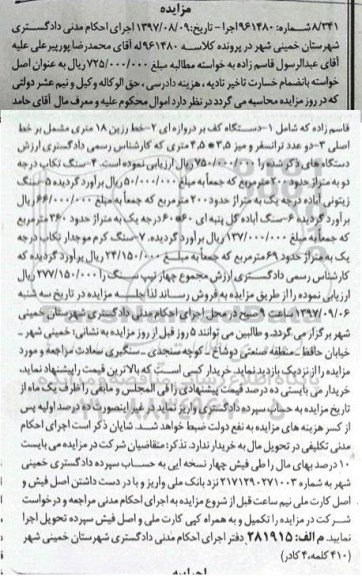 مزایده
۸/۳۴۱ شماره: ۹۶۱۴۸۰اجرا - تاریخ: ۱۳۹۷/۰۸/۰۹ اجرای احکام مدنی دادگستری
شهرستان خمینی شهر در پرونده کلاسه ۹۶۱۴۸۰له آقای محمدرضا پورپیرعلی علیه
آقای عبدالرسول قاسم زاده به خواسته مطالبه مبلغ ۷۲۵/۰۰۰/۰۰۰ ریال به عنوان اصل
خواسته بانضمام خسارت تاخیر تادیه ، هزینه دادرسی ، حق الوکاله وکیل و نیم عشر دولتی
که در روز مزایده محاسبه می گردد در نظر دارد اموال محکوم علیه و معرف مال آقای حامد
قاسم زاده که شامل ۱-دستگاه کف بر دروازه ای ۲-خط رزین ۱۸ متری مشمل بر خط
اصلی ۳-دو عدد ترانسفر و میز ۳,۵* ۴,۵ متری که کارشناس رسمی دادگستری ارزش
دستگاه های ذکر شده را ۷۵۰/۰۰۰/۰۰۰ ریال ارزیابی نموده است. ۴-سنگ نکاب درجه
دو به متراژ حدود ۲۰۰مترمربع که جمعاً به مبلغ ۵۰/۰۰۰/۰۰۰ ریال برآورد گردیده ۵-سنگ
زیتونی آباده درجه یک به متراژ حدود ۲۰۰ مترمربع که جمعاً به مبلغ ۶۶/۰۰۰/۰۰۰ ریال
برآورد گردیده ۶-سنگ آباده گل پنبه ای ۶۰*۶۰ درجه یک به متراژ حدود ۳۶۰ مترمربع
که جمعاً به مبلغ ۱۳۷/۰۰۰/۰۰۰ ریال برآورد گردیده. ۷-سنگ کرم موجدار نکاب درجه
یک به متراژ حدود ۶۹مترمربع که جمعاً به مبلغ ۲۴/۱۵۰/۰۰۰ ریال برآورد گردیده که
کارشناس رسمی دادگستری ارزش مجموع چهار تیپ سنگ را ۲۷۷/۱۵۰/۰۰۰ ریال
ارزیابی نموده را از طریق مزایده به فروش رساند لذا جلسه مزایده در تاریخ سه شنبه
۱۳۹۷/۰۹/۰۶ ساعت ۹ صبح در محل اجرای احکام مدنی دادگستری شهرستان خمینی
شهر برگزار می گردد. و طالبین می توانند ۵ روز قبل از روز مزایده به نشانی: خمینی شهر-
خیابان حافظ-منطقه صنعتی دوشاخ - کوچه سنجدی - سنگبری سعادت مراجعه و مورد
مزایده را از نزدیک بازدید نماید. خریدار کسی است که بالاترین قیمت را پیشنهاد نماید،
خریدار می بایستی ده درصد قیمت پیشنهادی را فی المجلس و مابقی را ظرف یک ماه از
تاریخ مزایده به حساب سپرده دادگستری واریز نماید در غیر اینصورت ده درصد اولیه پس
از کسر هزینه های مزایده به نفع دولت ضبط خواهد شد. شایان ذکر است اجرای احکام
مدنی تکلیفی در تحویل مال به خریدار ندارد. تذکر: متقاضیان شرکت در مزایده می بایست
۱۰ درصد بهای مال را طی فیش چهار نسخه ایی به حساب سپرده دادگستری خمینی
شهر به شماره ۲۱۷۱۲۹۰۲۷۱۰۰۳ نزد بانک ملی واریز و با در دست داشتن اصل فیش و
اصل کارت ملی نیم ساعت قبل از شروع مزایده به اجرای احکام مدنی مراجعه و درخواست
شرکت در مزایده را تکمیل و به همراه کپی کارت ملی و اصل فیش سپرده تحویل اجرا
نمایند. م الف: ۲۸۱۹۱۵ دفتر اجرای احکام مدنی دادگستری شهرستان خمینی شهر
(۴۱۰ کلمه، ۴ کادر)